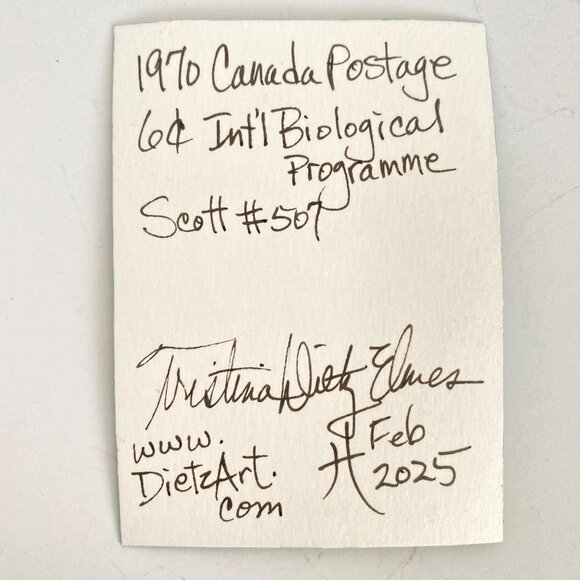 1970 Canada Postage
6¢ Int'l Biological
Programme
Scott #507
Tristina Dietz Elmes
www.
DietzArt.
com
Feb
2025